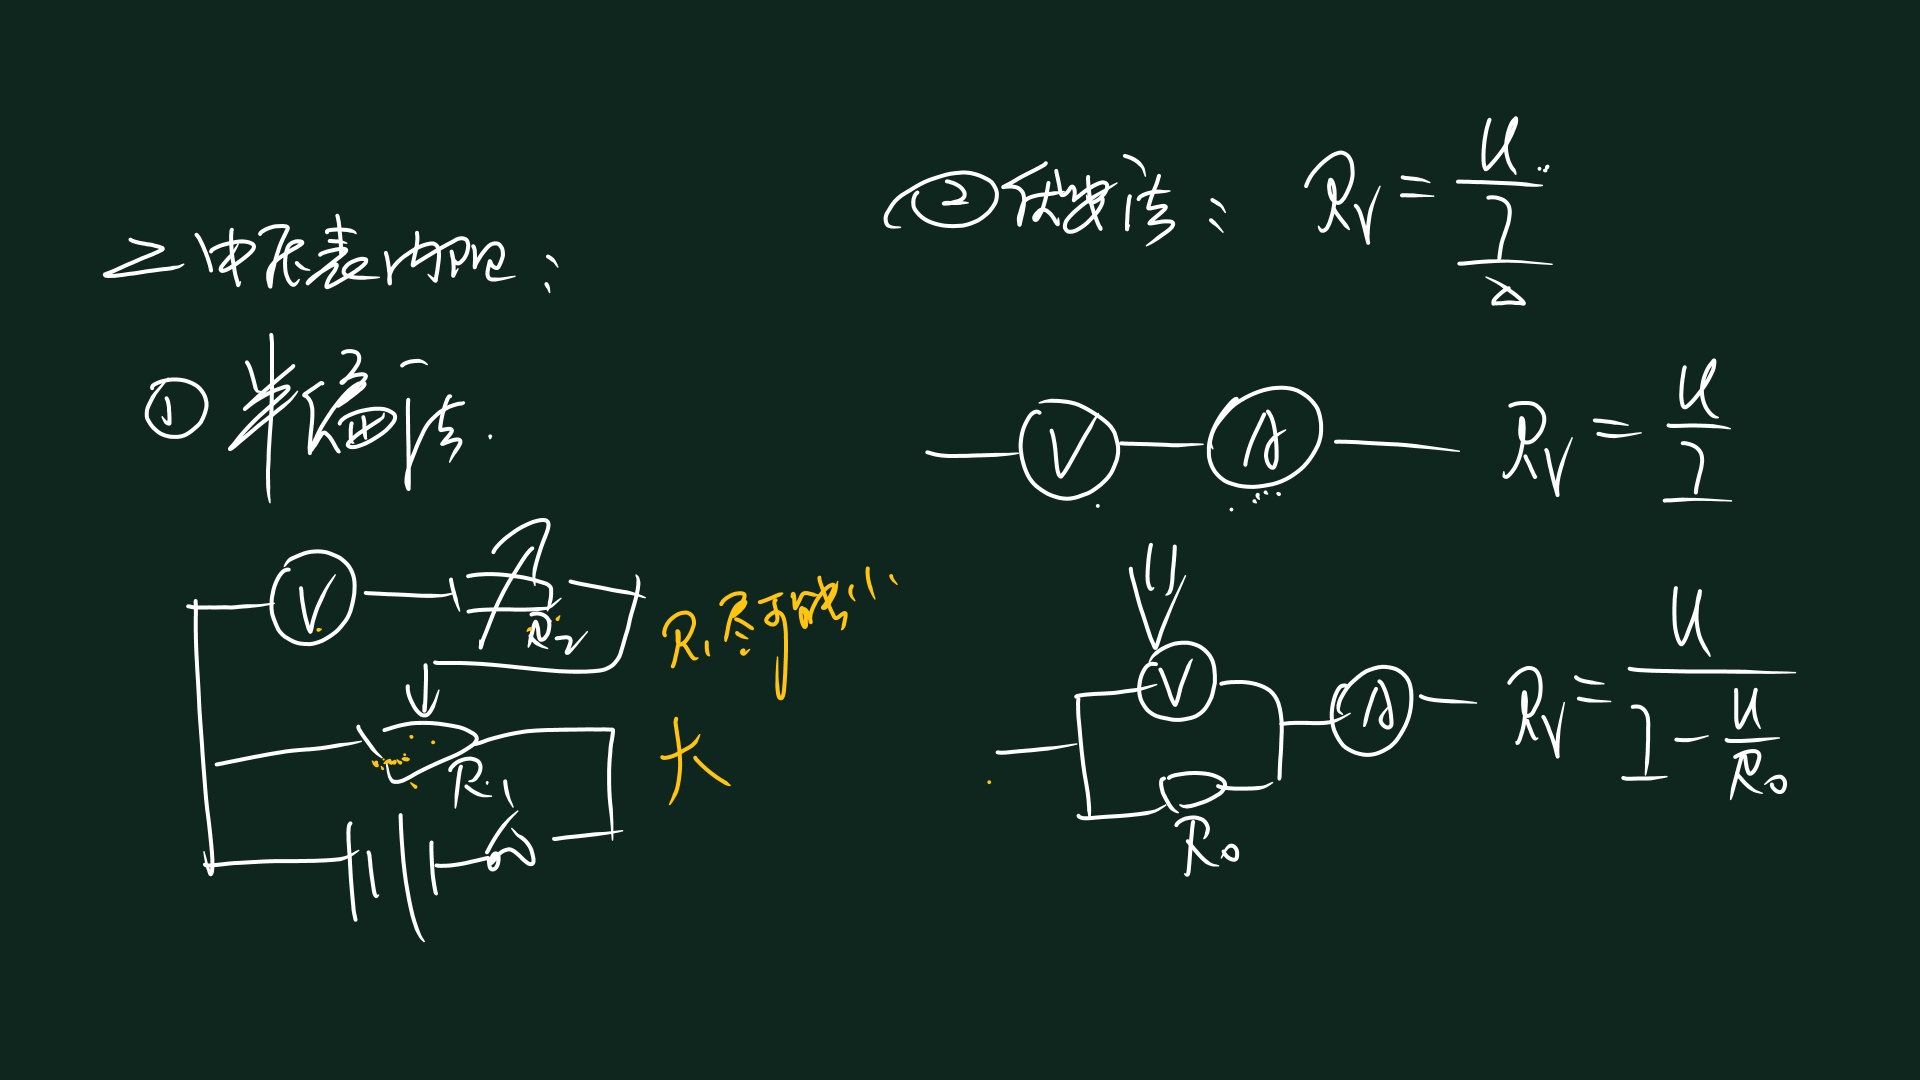 二 电压表内阻：
① 半偏法.
V
R₂
R₁
R₁尽可能小
大
② 伏安法： R_V = U / I
V A R_V = U / I
V A R_V = U / (I - U / R₀)
R₀